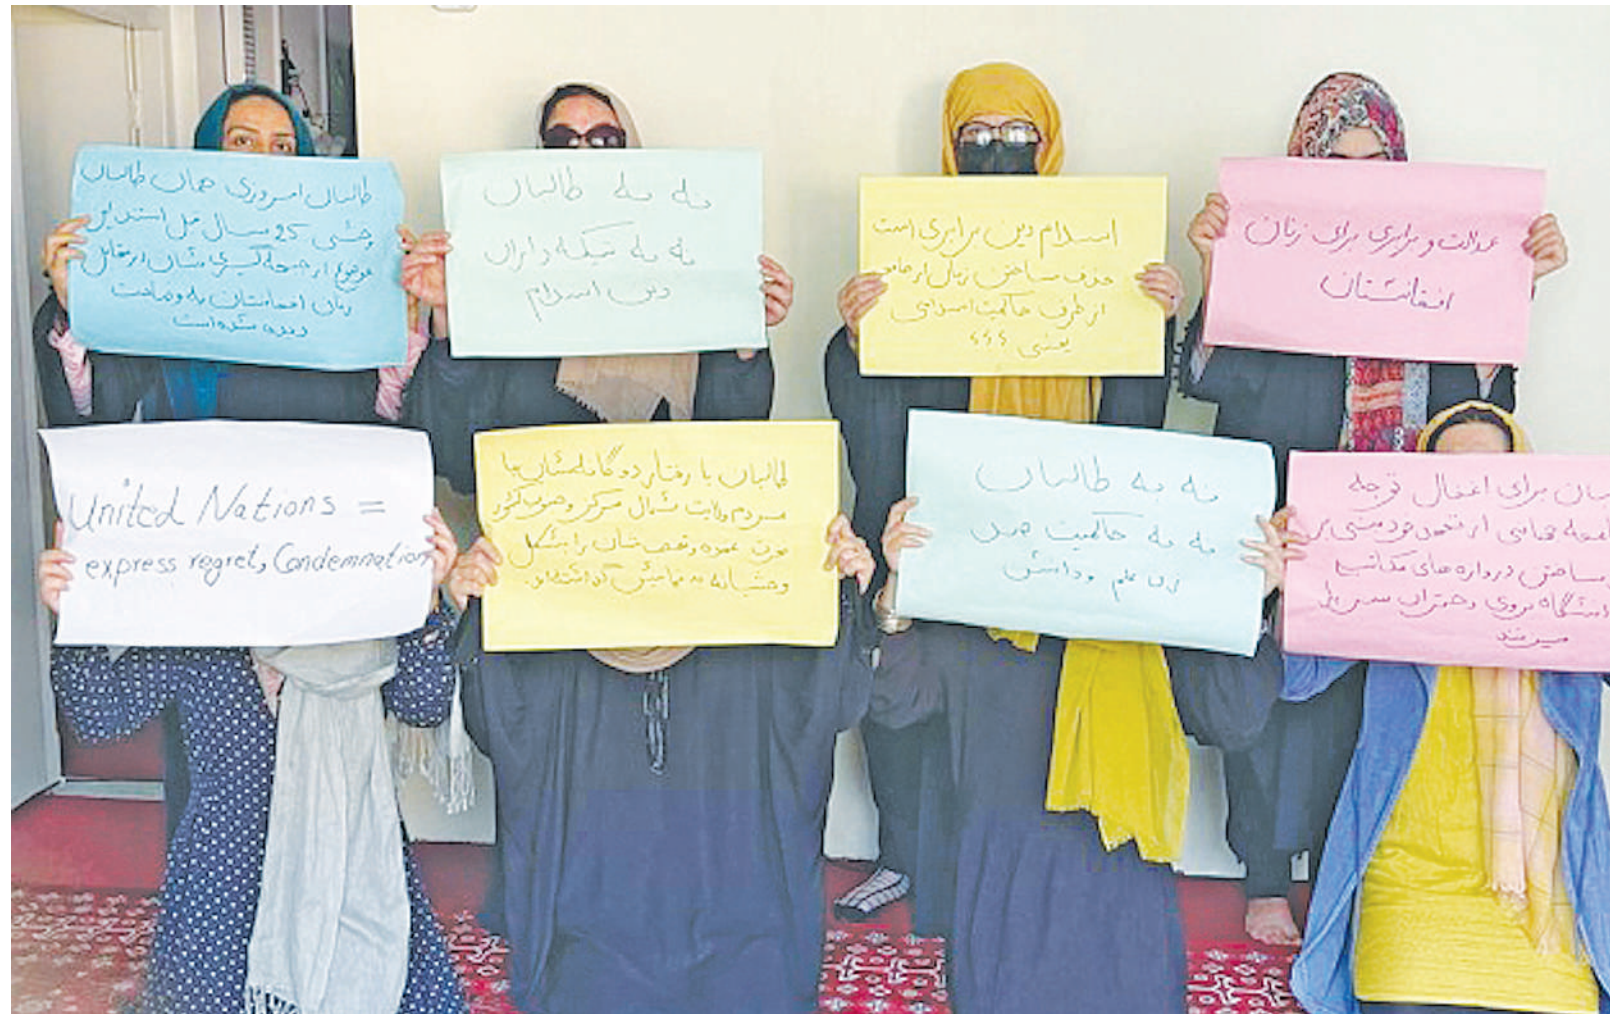 طالبان امروزی همان طالبان
25 سال قبل استند این
موضوع از جبهه گیری شان در مقابل
زنان افغانستان به وضاحت
دیده شده است
نه به طالبان
نه به تیکه داران
دین اسلام
اسلام دین برابری است
حذف ساختن زنان از جامعه
از طرف حاکمیت اسلامی
یعنی ؟؟؟
عدالت و برابری برای زنان
افغانستان
United Nations =
express regret, Condemnation
طالبان با رفتار دوگانه شان با
مردم ولایت شمال مرکز و جنوب کشور
شان را بشکل
وحشیانه به نمایش گذاشته اند.
نه به طالبان
نه به حاکمیت
علم و دانش
برای اغفال توجه
جامعه جهانی از
ساختن دروازه های مکاتب
دانشگاه بروی دختران سر باز
میزنند